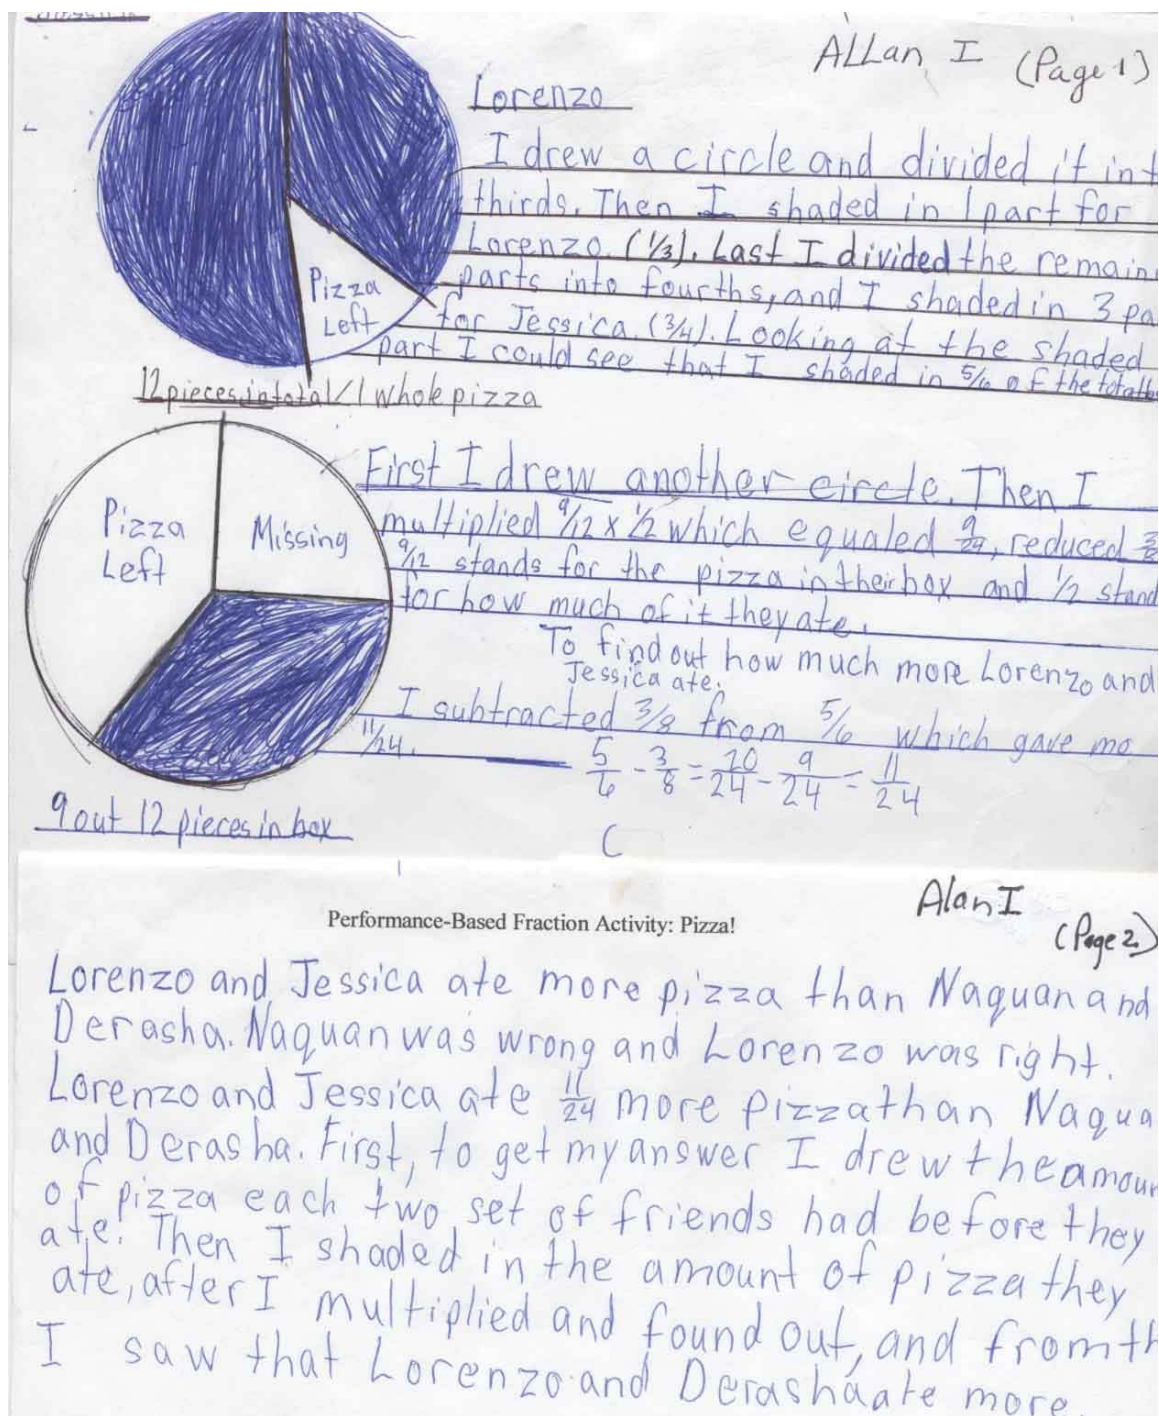 ALLan I (Page 1)
Lorenzo
I drew a circle and divided it int
thirds. Then I shaded in 1 part for
Lorenzo. (1/3). Last I divided the remain
parts into fourths, and I shaded in 3 pa
for Jessica. (3/4). Looking at the shaded
part I could see that I shaded in 5/6 of the total
Pizza
Left
12 pieces in total / 1 whole pizza
First I drew another circle. Then I
multiplied 9/12 x 1/2 which equaled 9/24, reduced 3/8
9/12 stands for the pizza in their box and 1/2 stand
for how much of it they ate.
To find out how much more Lorenzo and
Jessica ate.
I subtracted 3/8 from 5/6 which gave me
11/24.
5/6 - 3/8 = 20/24 - 9/24 = 11/24
Pizza
Left
Missing
9 out 12 pieces in box
Alan I
(Page 2)
Performance-Based Fraction Activity: Pizza!
Lorenzo and Jessica ate more pizza than Naquan and
Derasha. Naquan was wrong and Lorenzo was right.
Lorenzo and Jessica ate 11/24 more pizza than Naqua
and Derasha. First, to get my answer I drew the amoun
of pizza each two set of friends had before they
ate. Then I shaded in the amount of pizza they
ate, after I multiplied and found out, and from th
I saw that Lorenzo and Derasha ate more.